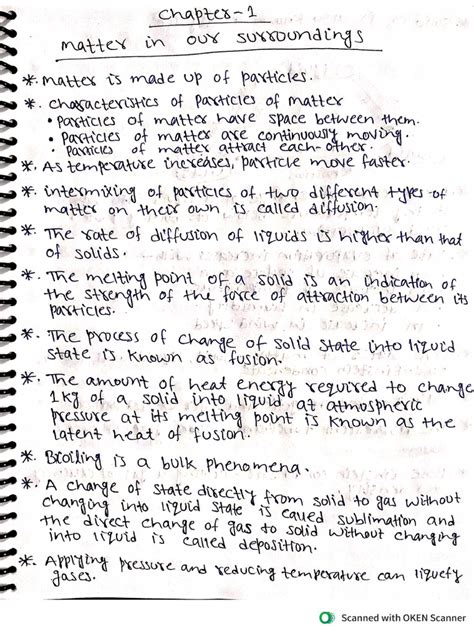 Chapter-1
matter in our surroundings
*. Matter is made up of particles.
*. Characteristics of Particles of matter
• Particles of matter have space between them.
• Particles of matter are continuously moving.
• Particles of matter attract each-other.
*. As temperature increases, particle move faster.
*. intermixing of particles of two different types of
matter on their own is called diffusion.
*. The rate of diffusion of liquids is higher than that
of solids.
*. The melting point of a solid is an indication of
the strength of the force of attraction between its
particles.
*. The process of change of solid state into liquid
state is known as fusion.
*. The amount of heat energy required to change
1kg of a solid into liquid at atmospheric
pressure at its melting point is known as the
latent heat of fusion.
*. Broiling is a bulk phenomena.
*. A change of state directly from solid to gas without
changing into liquid state is called sublimation and
the direct change of gas to solid without changing
into liquid is called deposition.
*. Applying pressure and reducing temperature can liquefy
gases.
Scanned with OKEN Scanner